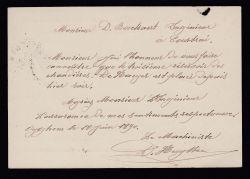 Monsieur D. Bouckaert Ingénieur
à Courtrai.
Monsieur j'ai l'honneur de vous faire
connaître que le troisième
chaudière De Naeyer est placé depuis
hier soir.
Agréez Monsieur l'Ingénieur
l'assurance de mes sentiments respectueux
le 10 juin 1890.
Le Machiniste